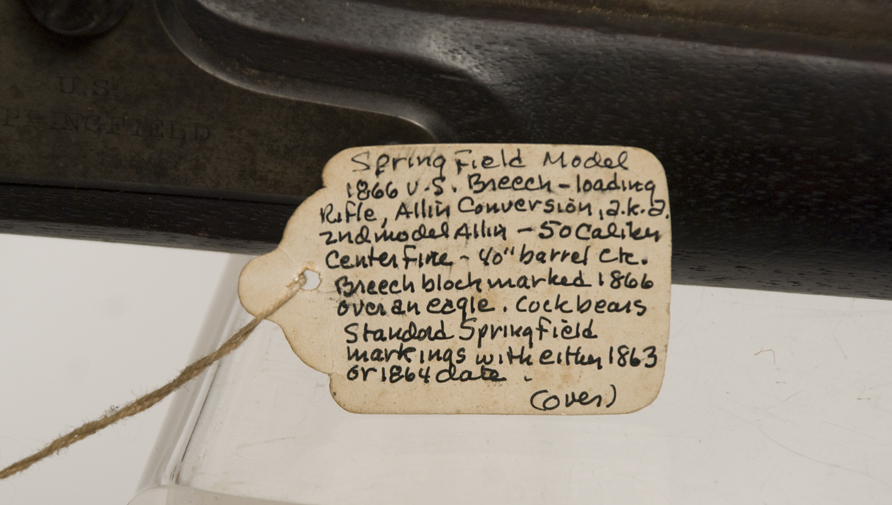 U.S.
SPRINGFIELD
Springfield Model
1866 U.S. Breech-loading
Rifle, Allin Conversion, a.k.a.
2nd model Allin - 50 Caliber
Centerfire - 40" barrel etc.
Breech block marked 1866
over an eagle. Cock bears
Standard Springfield
markings with either 1863
or 1864 date.
(over)